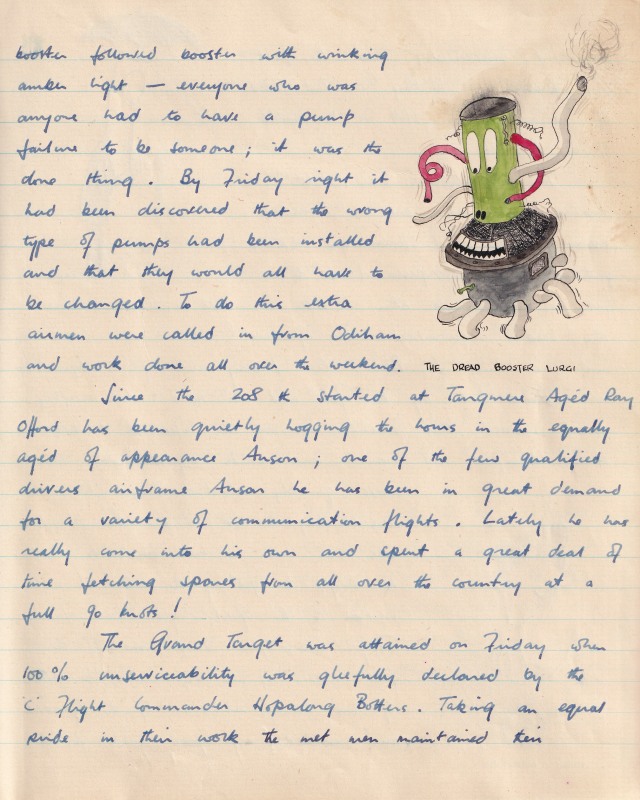 booster followed booster with winking
amber light — everyone who was
anyone had to have a pump
failure to be someone; it was the
done thing. By Friday night it
had been discovered that the wrong
type of pumps had been installed
and that they would all have to
be changed. To do this extra
airmen were called in from Odiham
and work done all over the weekend.
THE DREAD BOOSTER LURGI
Since the 208 th started at Tangmere Agéd Ray
Offord has been quietly hogging the hours in the equally
agéd of appearance Anson; one of the few qualified
drivers airframe Anson he has been in great demand
for a variety of communication flights. Lately he has
really come into his own and spent a great deal of
time fetching spares from all over the country at a
full 90 knots!
The Grand Target was attained on Friday when
100% unserviceability was gleefully declared by the
'C' Flight Commander Hopalong Botters. Taking an equal
pride in their work the met men maintained their